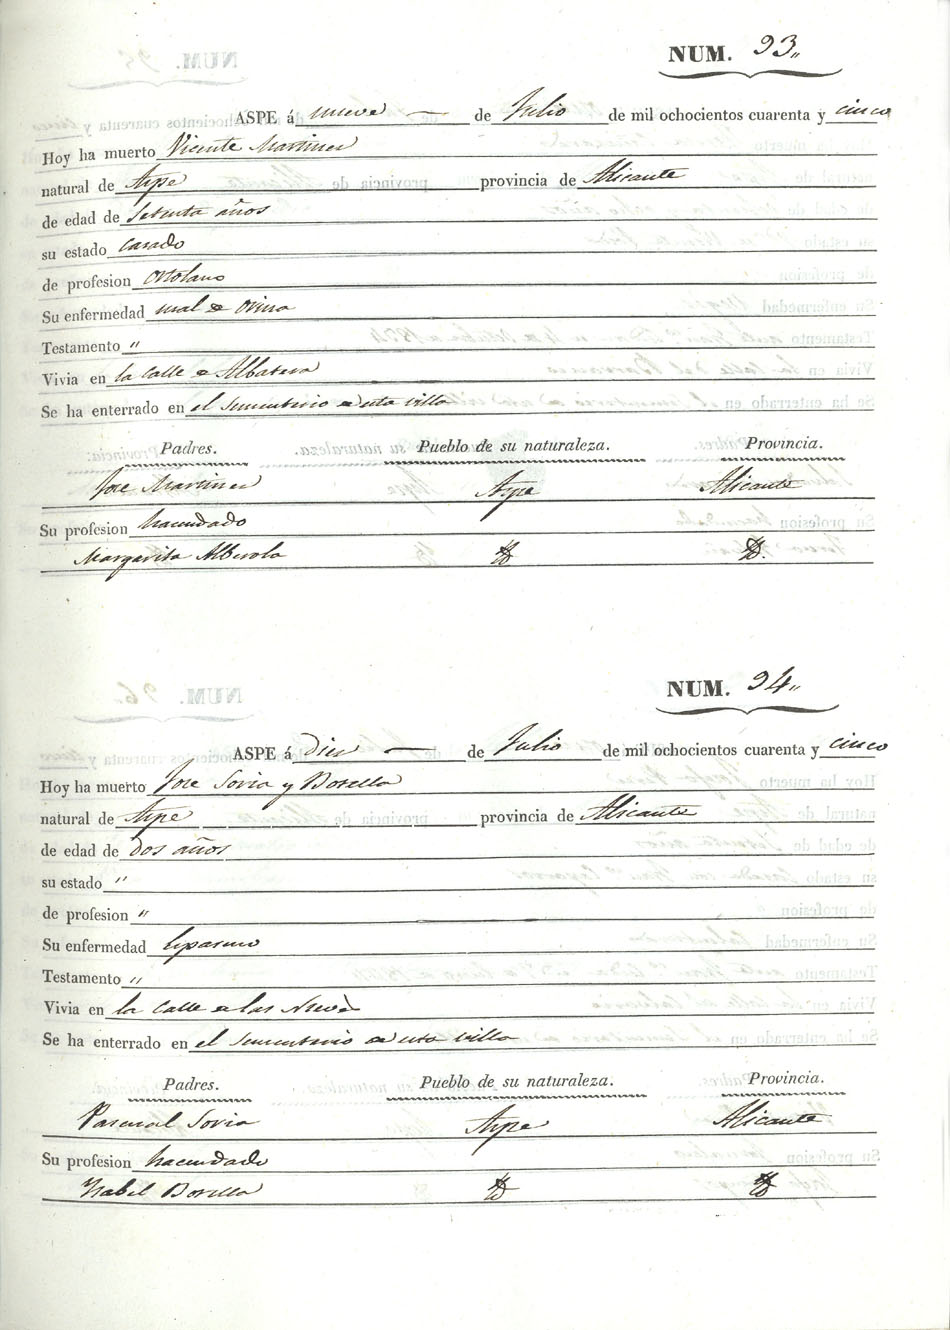 NUM. 93.,
ASPE á nueve de Julio de mil ochocientos cuarenta y cinco
Hoy ha muerto Vicente Martinez
natural de Aspe provincia de Alicante
de edad de setenta años
su estado casado
de profesion Ortolano
Su enfermedad mal de orina
Testamento "
Vivia en la Calle de Albatera
Se ha enterrado en el sementerio de esta villa
Padres. Pueblo de su naturaleza. Provincia.
Jose Martinez Aspe Alicante
Su profesion hacendado
Margarita Alberola Yd Yd.
NUM. 94.,
ASPE á diez de Julio de mil ochocientos cuarenta y cinco
Hoy ha muerto Jose Soria y Botella
natural de Aspe provincia de Alicante
de edad de dos años
su estado "
de profesion "
Su enfermedad
Testamento "
Vivia en la Calle de las Nieves
Se ha enterrado en el sementerio de esta villa
Padres. Pueblo de su naturaleza. Provincia.
Pascual Soria Aspe Alicante
Su profesion hacendado
Ysabel Botella Yd Yd